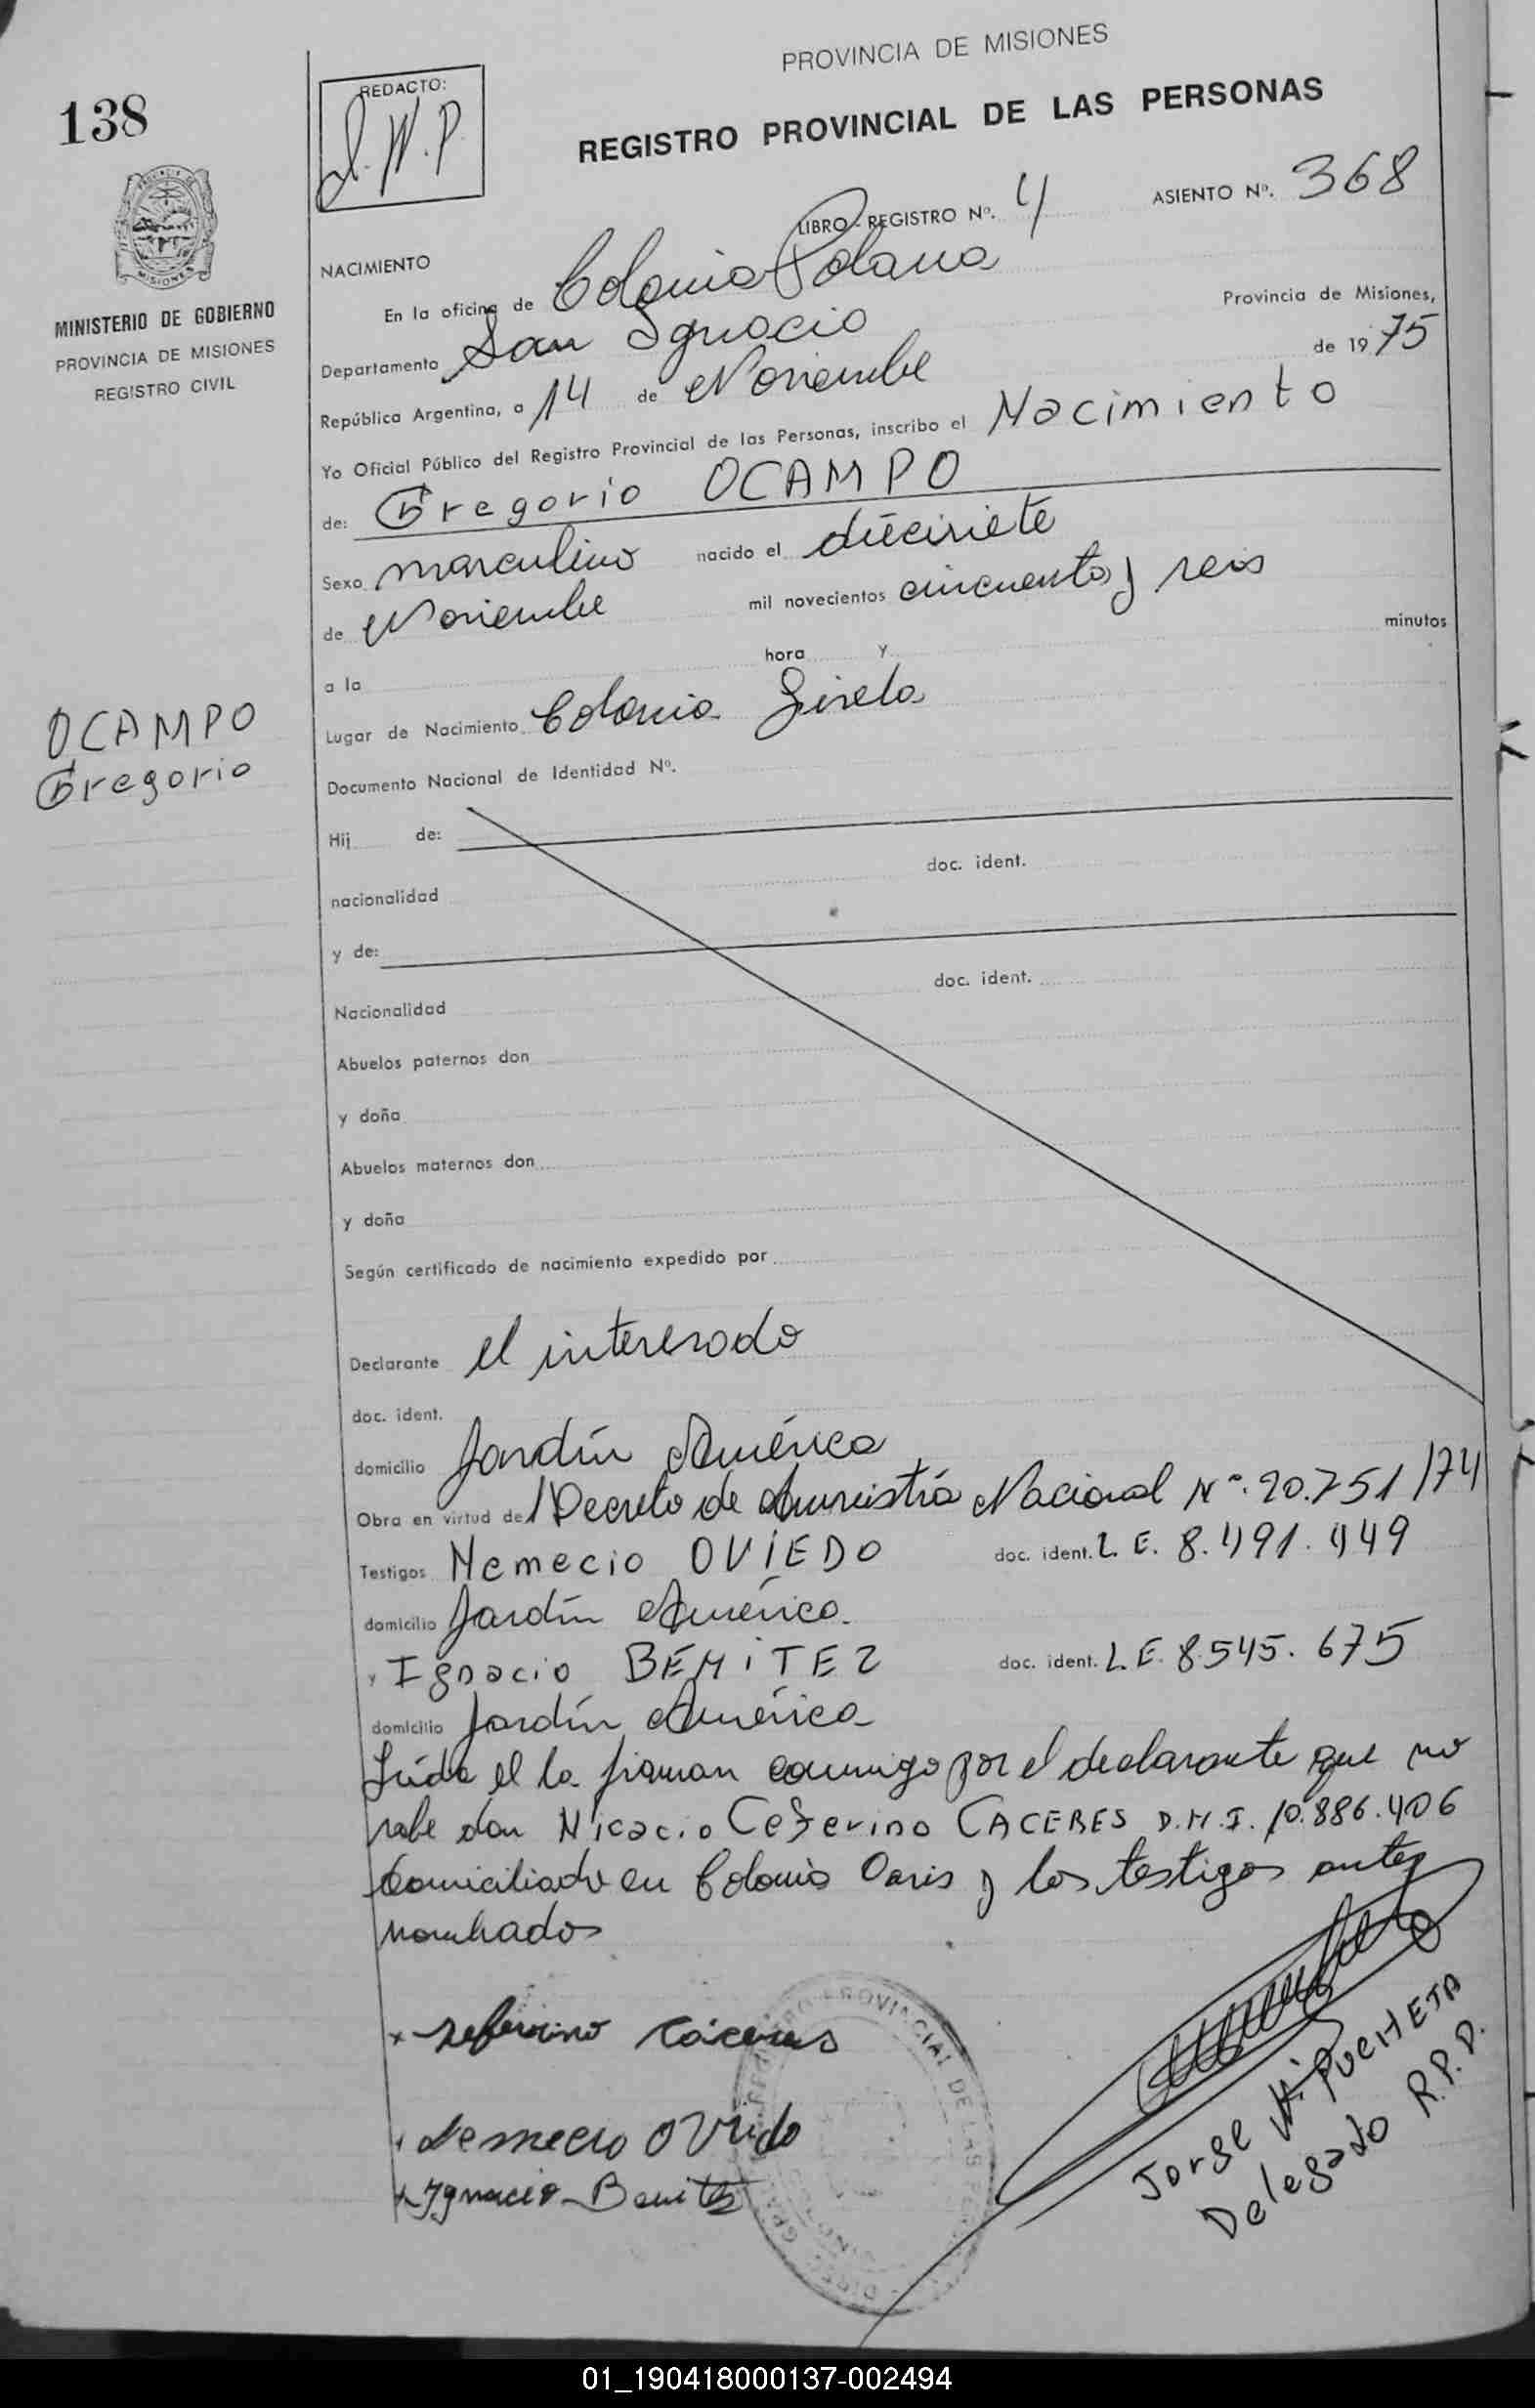 138
REDACTO:
J.W.P.
PROVINCIA DE MISIONES
REGISTRO PROVINCIAL DE LAS PERSONAS
LIBRO - REGISTRO Nº. 4 ASIENTO Nº. 368
MINISTERIO DE GOBIERNO
PROVINCIA DE MISIONES
REGISTRO CIVIL
NACIMIENTO
En la oficina de Colonia Polana
Departamento San Ignacio Provincia de Misiones,
República Argentina, a 14 de Noviembre de 1975
Yo Oficial Público del Registro Provincial de las Personas, inscribo el Nacimiento
de: Gregorio OCAMPO
Sexo masculino nacido el diecisiete
de Noviembre mil novecientos cincuenta y seis
a la hora y minutos
OCAMPO
Gregorio
Lugar de Nacimiento Colonia Gisela
Documento Nacional de Identidad Nº.
Hij de:
nacionalidad doc. ident.
y de:
Nacionalidad doc. ident.
Abuelos paternos don
y doña
Abuelos maternos don
y doña
Según certificado de nacimiento expedido por
Declarante el interesado
doc. ident.
domicilio Jardín América
Obra en virtud de Decreto de Amnistía Nacional Nº. 20.751/74
Testigos Nemecio OVIEDO doc. ident. L.E. 8.491.449
domicilio Jardín América
y Ignacio BENITEZ doc. ident. L.E. 8.545.675
domicilio Jardín América
Leída el la firman conmigo por el declarante que no
sabe don Nicacio Ceferino CACERES D.N.I. 10.886.406
domiciliado en Colonia Oasis y los testigos antes
nombrados
x Seferino Cáceres
Nemecio Oviedo
x Ignacio Benitez
REGISTRO PROVINCIAL DE LAS PERSONAS
Jorge W. PUCHETA
Delegado R.P.P.
01_190418000137-002494